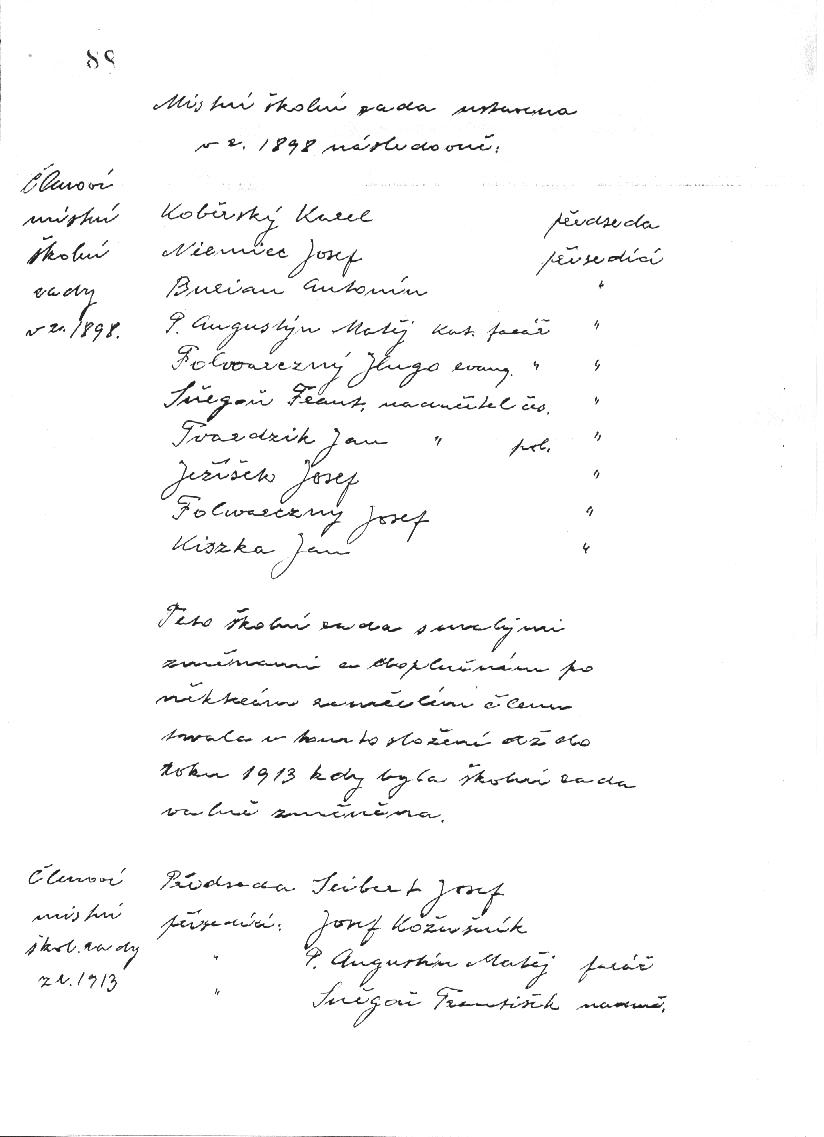 88
Místní školní rada ustavena
v r. 1898 následovně:
Členové
místní
školní
rady
v r. 1898.
Koběrský Karel předseda
Niemiec Josef přísedící
Burian Antonín "
P. Augustýn Matěj kat. farář "
Folwarczný Hugo evang. " "
Sněgoň Frant. nadučitel čes. "
Tvardzik Jan " pol. "
Ježíšek Josef "
Folwarczný Josef "
Kiszka Jan "
Teto školní rada s malými
změnami a doplněním po
někkerém zemřelém členu
trvala v tomto složení až do
roku 1913 kdy byla školní rada
valně změněna.
Členové
místní
škol. rady
z r. 1913
Předseda Seibert Josef
přísedící: Josef Kožušník
" P. Augustin Matěj farář
" Sněgoň František naduč.